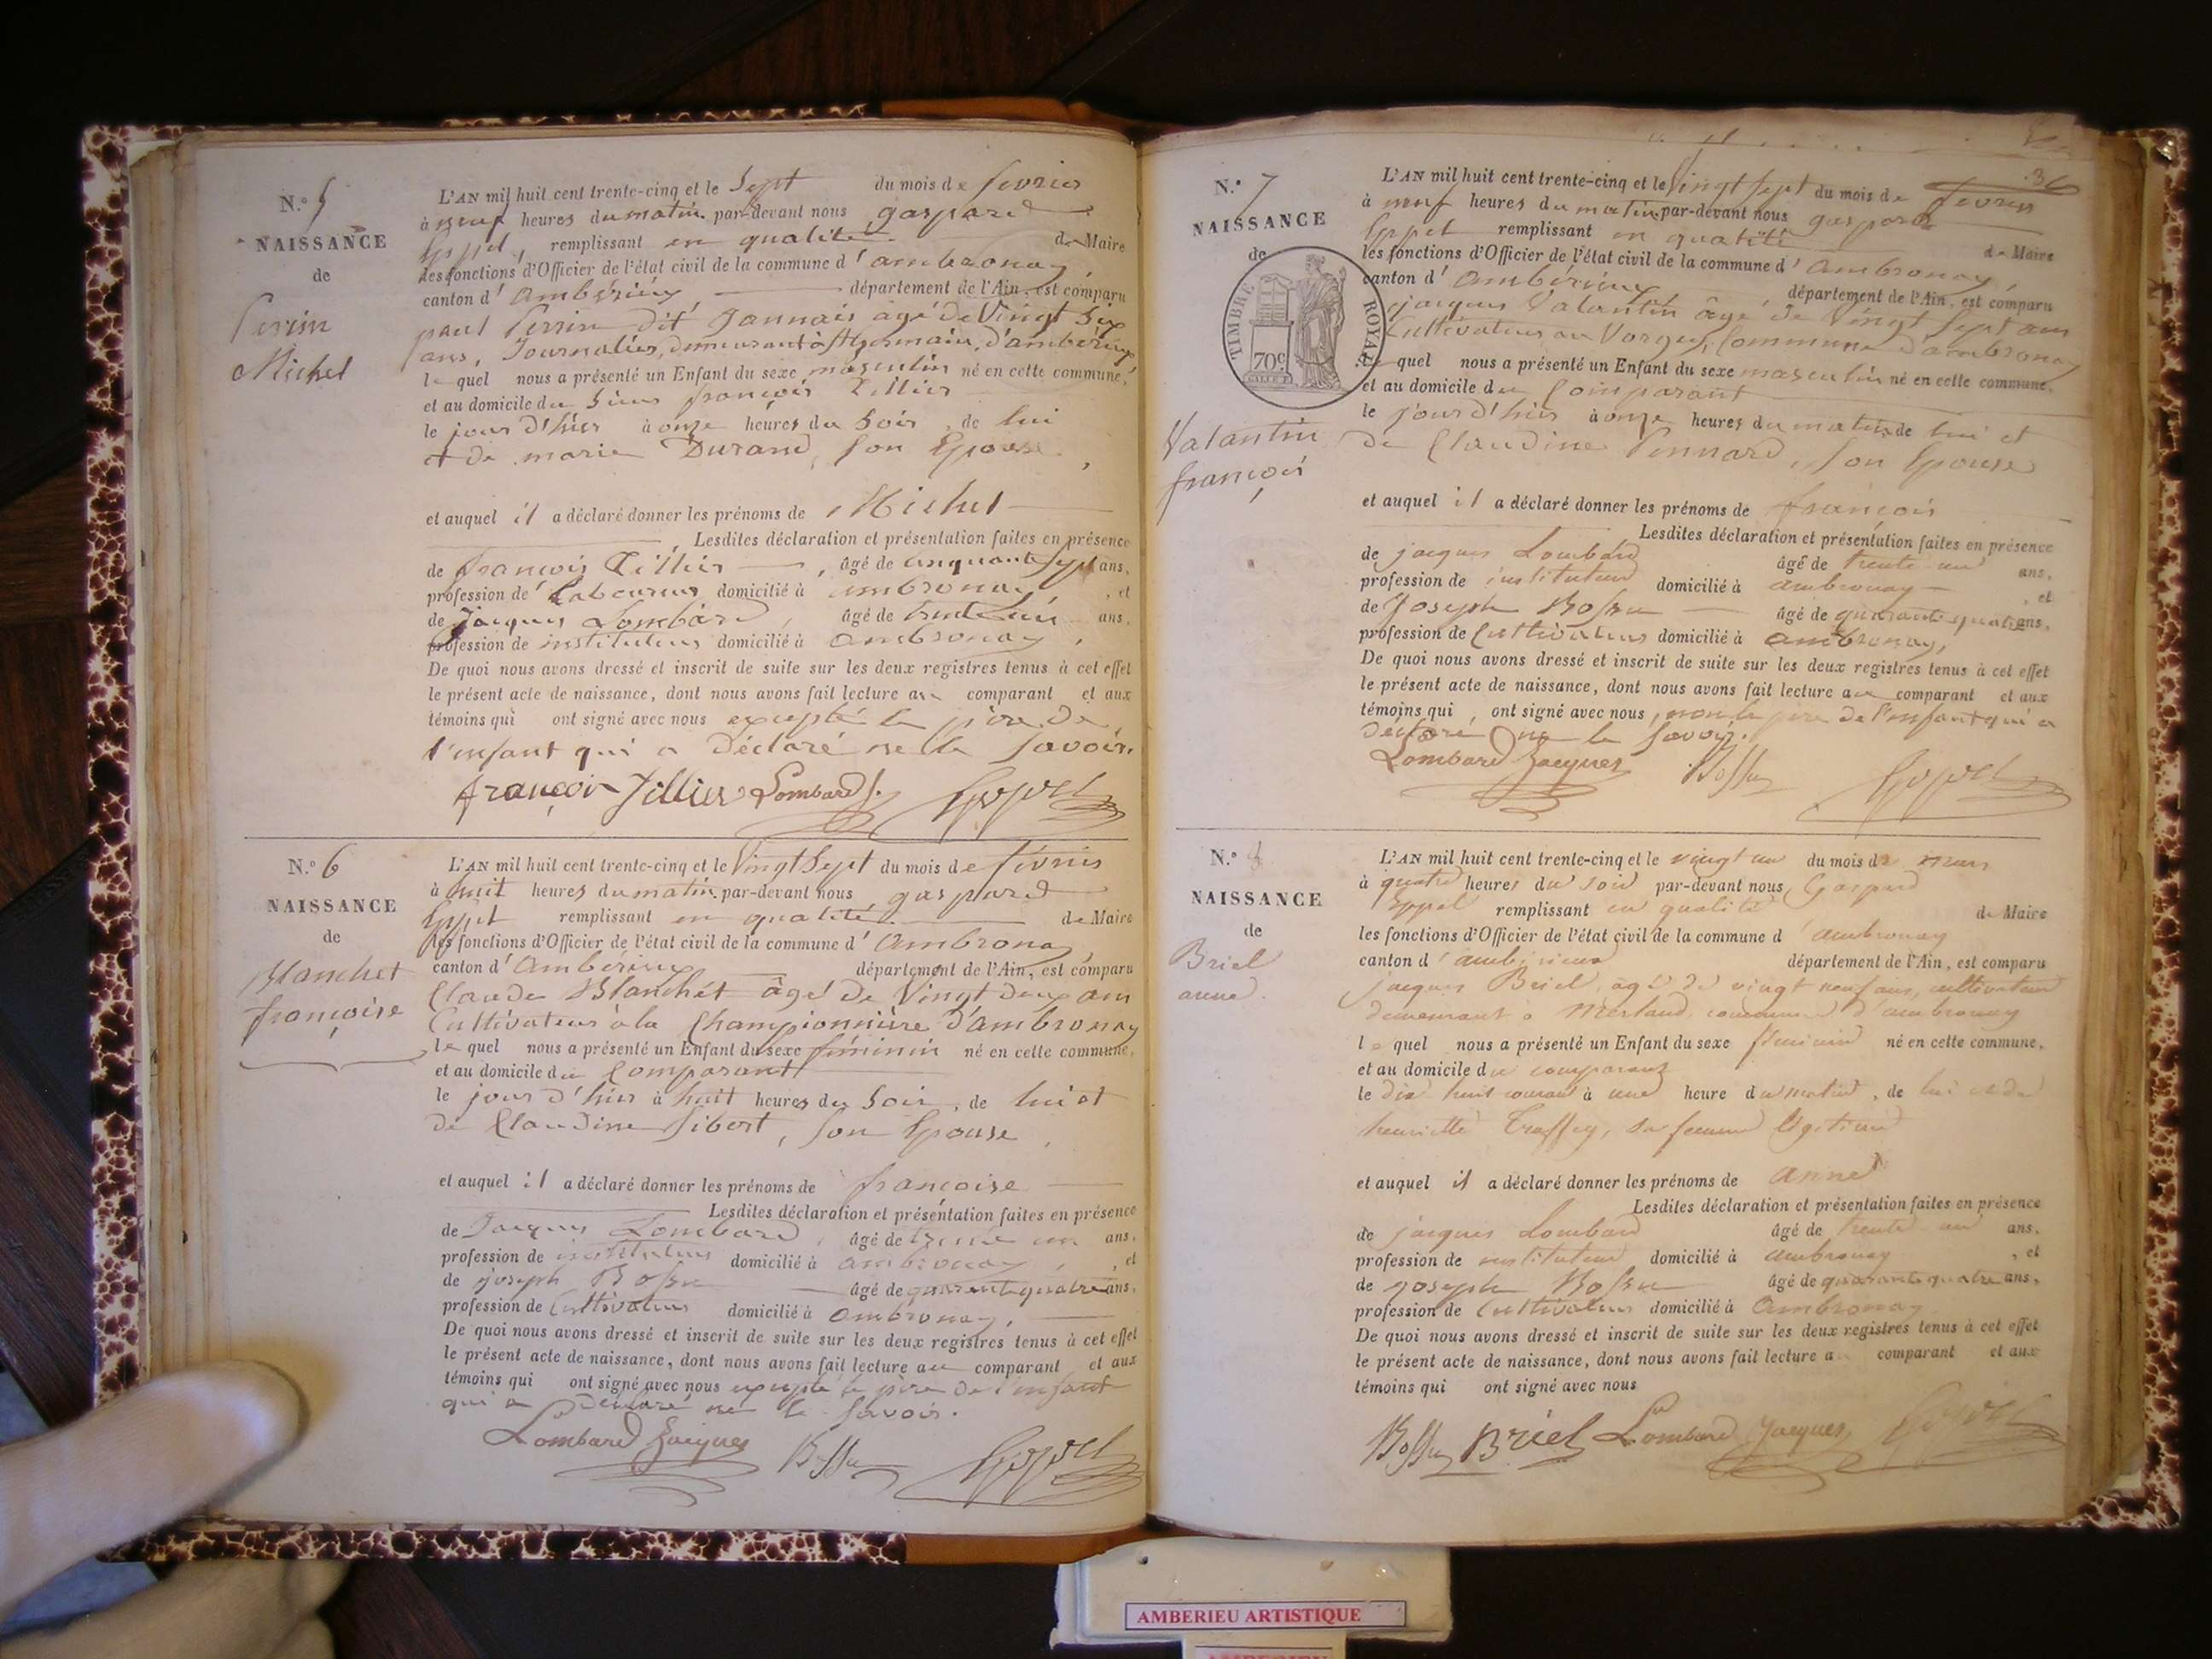 N.° 5
NAISSANCE
de
Perrin
Michel
L'AN mil huit cent trente-cinq et le Sept du mois de fevrier
à neuf heures du matin par-devant nous gaspard
Eppel, remplissant en qualité de Maire
les fonctions d'Officier de l'état civil de la commune d'ambronay,
canton d'Ambérieux département de l'Ain, est comparu
paul Perrin dit Jannais agé de Vingt Six
ans, Journalier, demeurant à St germain, d'ambérieux
le quel nous a présenté un Enfant du sexe masculin né en cette commune,
et au domicile du Sieur françois Tillier
le jour d'hier à onze heures du Soir, de lui
et de marie Durand, Son Epouse,
et auquel il a déclaré donner les prénoms de Michel
Lesdites déclaration et présentation faites en présence
de françois Tillier, âgé de cinquante Sept ans,
profession de Laboureur domicilié à ambronay, et
de Jacques Lombard, âgé de trente un ans,
profession de instituteur domicilié à ambronay,
De quoi nous avons dressé et inscrit de suite sur les deux registres tenus à cet effet
le présent acte de naissance, dont nous avons fait lecture au comparant et aux
témoins qui ont signé avec nous excepté le père de
l'enfant qui a déclaré ne le Savoir.
françois Tillier Lombard J. Eppel
N.° 6
NAISSANCE
de
Blanchet
françoise
L'AN mil huit cent trente-cinq et le Vingt Sept du mois de février
à huit heures du matin par-devant nous gaspard
Eppel remplissant en qualité de Maire
les fonctions d'Officier de l'état civil de la commune d'Ambronay
canton d'Ambérieux département de l'Ain, est comparu
Claude Blanchet âgé de Vingt deux ans
Cultivateur à la Championnière d'Ambronay
le quel nous a présenté un Enfant du sexe féminin né en cette commune,
et au domicile du Comparant
le jour d'hier à huit heures du Soir, de lui et
de Claudine Sibert, Son Epouse,
et auquel il a déclaré donner les prénoms de françoise
Lesdites déclaration et présentation faites en présence
de Jacques Lombard, âgé de trente un ans,
profession de instituteur domicilié à ambronay, et
de joseph Bossu âgé de quarante quatre ans,
profession de Cultivateur domicilié à ambronay,
De quoi nous avons dressé et inscrit de suite sur les deux registres tenus à cet effet
le présent acte de naissance, dont nous avons fait lecture au comparant et aux
témoins qui ont signé avec nous excepté le père de l'enfant
qui a déclaré ne le Savoir.
Lombard Jacques Bossu Eppel
36
N.° 7
NAISSANCE
de
TIMBRE ROYAL
70c
Valantin
françois
L'AN mil huit cent trente-cinq et le Vingt Sept du mois de fevrier
à neuf heures du matin par-devant nous gaspard
Eppel remplissant en qualité de Maire
les fonctions d'Officier de l'état civil de la commune d'Ambronay
canton d'Ambérieux département de l'Ain, est comparu
jacques Valantin âgé de Vingt Sept ans
Cultivateur au Vorget, Commune d'ambronay
le quel nous a présenté un Enfant du sexe masculin né en cette commune,
et au domicile du Comparant
le jour d'hier à onze heures du matin, de lui et
de Claudine Pennard, Son Epouse
et auquel il a déclaré donner les prénoms de françois
Lesdites déclaration et présentation faites en présence
de jacques Lombard âgé de trente un ans,
profession de instituteur domicilié à ambronay, et
de Joseph Bossu âgé de quarante quatre ans,
profession de Cultivateur domicilié à ambronay,
De quoi nous avons dressé et inscrit de suite sur les deux registres tenus à cet effet
le présent acte de naissance, dont nous avons fait lecture au comparant et aux
témoins qui, ont signé avec nous, non le père de l'enfant qui a
déclaré ne le Savoir.
Lombard Jacques Bossu Eppel
N.° 8
NAISSANCE
de
Briel
anne.
L'AN mil huit cent trente-cinq et le vingt un du mois de mars
à quatre heures du soir par-devant nous Gaspard
Eppel remplissant en qualité de Maire
les fonctions d'Officier de l'état civil de la commune d'ambronay
canton d'ambérieux département de l'Ain, est comparu
jacques Briel, agé de vingt neuf ans, cultivateur
demeurant à Merland, commune d'ambronay
le quel nous a présenté un Enfant du sexe féminin né en cette commune,
et au domicile du comparant
le dix huit courant à une heure du matin, de lui et de
henriette Traffey, sa femme légitime
et auquel il a déclaré donner les prénoms de anne
Lesdites déclaration et présentation faites en présence
de jacques Lombard âgé de trente un ans,
profession de instituteur domicilié à ambronay, et
de Joseph Bossu âgé de quarante quatre ans,
profession de Cultivateur domicilié à Ambronay
De quoi nous avons dressé et inscrit de suite sur les deux registres tenus à cet effet
le présent acte de naissance, dont nous avons fait lecture a comparant et aux
témoins qui ont signé avec nous
Bossu Briel Lombard Jacques Eppel
AMBERIEU ARTISTIQUE